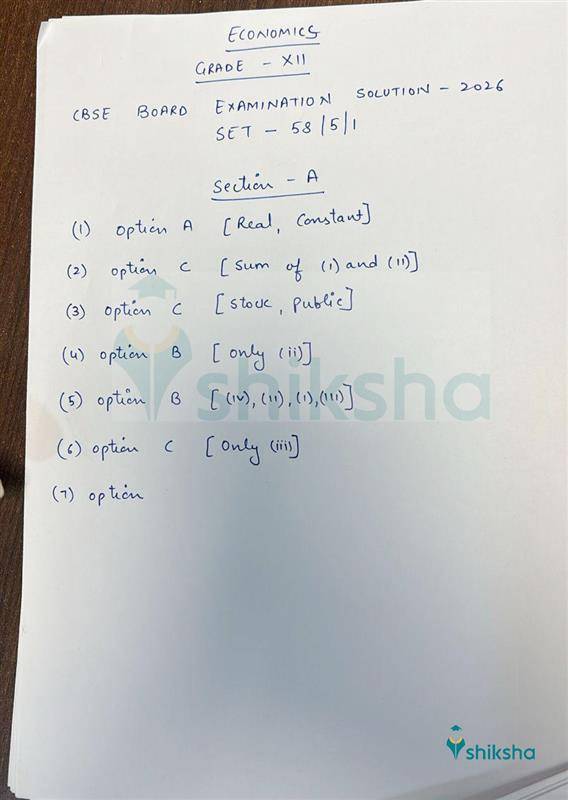 ECONOMICS
GRADE - XII
CBSE BOARD EXAMINATION SOLUTION - 2026
SET - 58/5/1
Section - A
(1) option A [Real, Constant]
(2) option C [Sum of (i) and (ii)]
(3) option C [Stock, Public]
(4) option B [only (ii)]
(5) option B [(iv), (ii), (i), (iii)]
(6) option C [Only (iii)]
(7) option
shiksha
shiksha